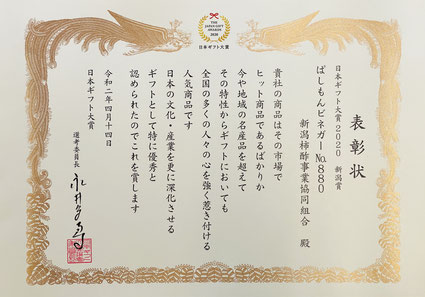 THE
JAPAN GIFT
AWARDS
2020
日本ギフト大賞
表彰状
日本ギフト大賞2020 新潟賞
ぱしもんビネガーNo.880
新潟柿酢事業協同組合 殿
貴社の商品はその市場で
ヒット商品であるばかりか
今や地域の名産品を超えて
その特性からギフトにおいても
全国の多くの人々の心を強く惹き付ける
人気商品です
日本の文化・産業を更に深化させる
ギフトとして特に優秀と
認められたのでこれを賞します
令和二年四月十四日
日本ギフト大賞
選考委員長